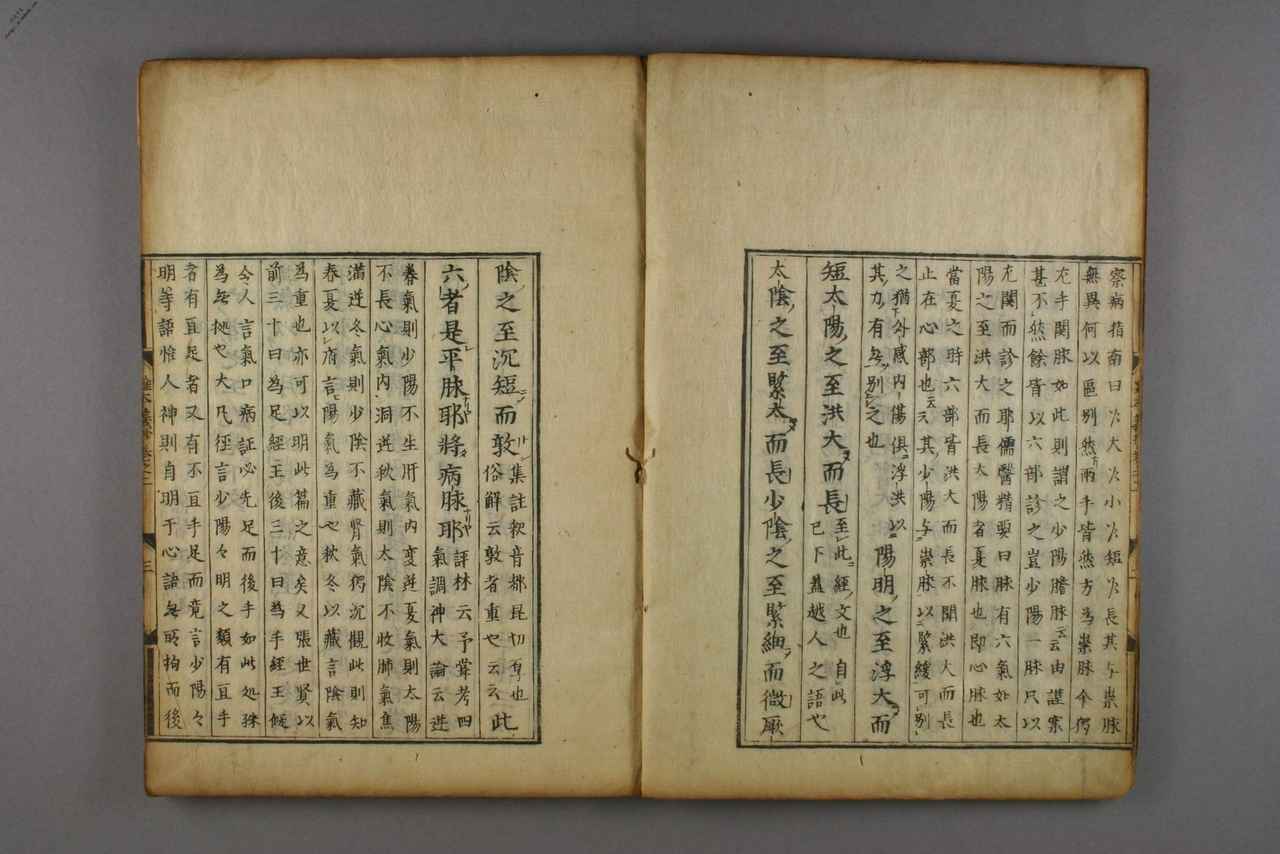 察病指南曰乍大乍小乍短乍長其与祟脉
無異何以區別然両手皆然方為祟脉今獨
左手関脉如此則謂之少陽膽脉云云由謹案
甚不然餘皆以六部診之豈少陽一脉只以
左関而診之耶儒醫精要曰脉有六氣如太
陽之至洪大而長太陽者夏脉也即心脉也
當夏之時六部皆洪大而長不聞洪大而長
止在心部也云云其少陽与祟脉以緊緩可別
之猶外感内傷俱浮洪以
其力有无別之也
陽明之至浮大而
短太陽之至洪大而長
至此経文也自此
已下蓋越人之語也
太陰之至緊大而長少陰之至緊細而微厥
陰之至沉短而敦
集註釈音都昆切厚也
俗解云敦者重也云云
此
六者是平脉耶将病脉耶
評林云予嘗考四
氣調神大論云逆
春氣則少陽不生肝氣内変逆夏氣則太陽
不長心氣内洞逆秋氣則太陰不收肺氣焦
満逆冬氣則少陰不藏腎氣獨沉觀此則知
春夏以府言陽氣為重也秋冬以藏言陰氣
為重也亦可以明此篇之意矣又張世賢以
前三十日為足經王後三十日為手經王
今人言氣口病証必先足而後手如此処殊
為无拠也大凡径言少陽々明之類有直手
者有直足者又有不直手足而竟言少陽々
明等語惟人神則自明于心諸无所拘而後